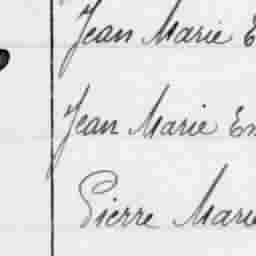 Jean Marie E
Jean Marie Em
Pierre Marie